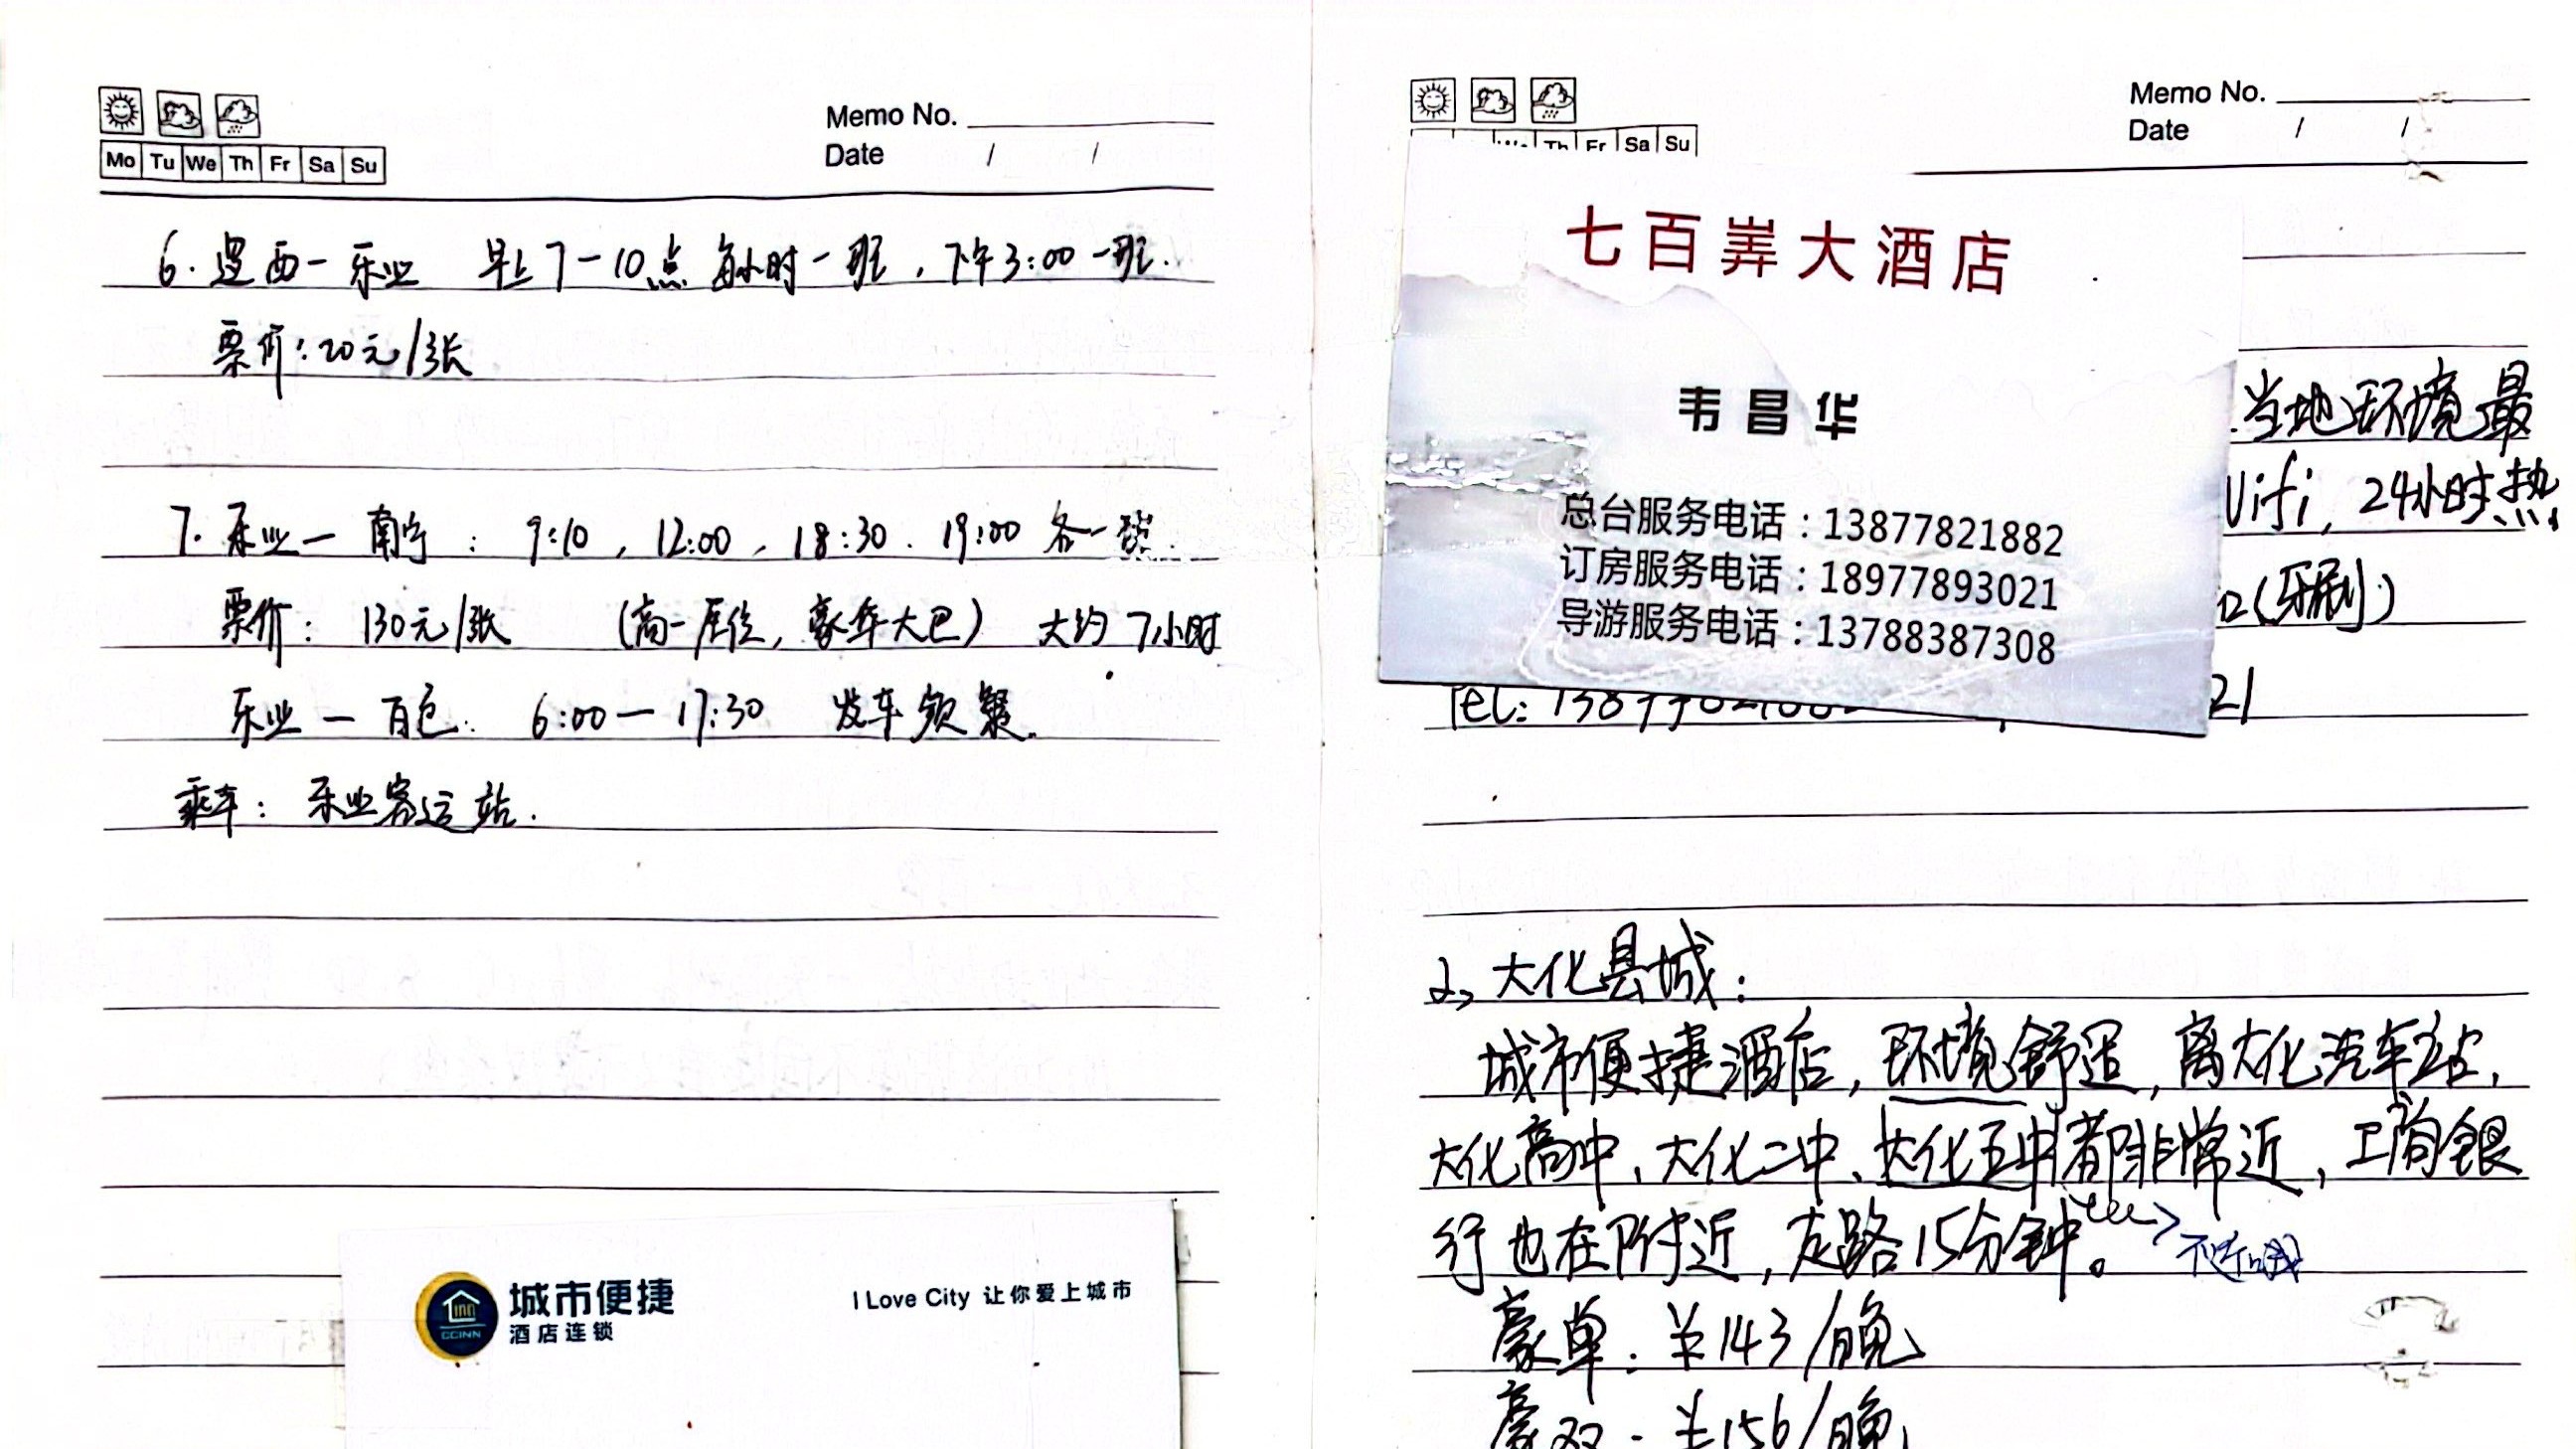 Mo Tu We Th Fr Sa Su
Memo No.
Date / /
6. 逻西一乐业 早上7-10点 每小时一班, 下午3:00一班.
票价: 20元/张
7. 乐业一南宁: 9:10, 12:00, 18:30. 19:00 各一班.
票价: 130元/张 (高一座位, 豪华大巴) 大约7小时
乐业一百色: 6:00—17:30 发车频繁.
乘车: 乐业客运站.
inn
CCINN
城市便捷
酒店连锁
I Love City 让你爱上城市
Th Fr Sa Su
Memo No.
Date / /
七百弄大酒店
韦昌华
总台服务电话:13877821882
订房服务电话:18977893021
导游服务电话:13788387308
当地环境最
Wifi, 24小时热
(牙刷)
Tel: 13877821882
21
2、大化县城:
城市便捷酒店, 环境舒适, 离大化汽车站,
大化高中、大化二中、大化五中都非常近, 工商银
行也在附近, 走路15分钟。
豪单: ¥143/晚
豪双: ¥156/晚